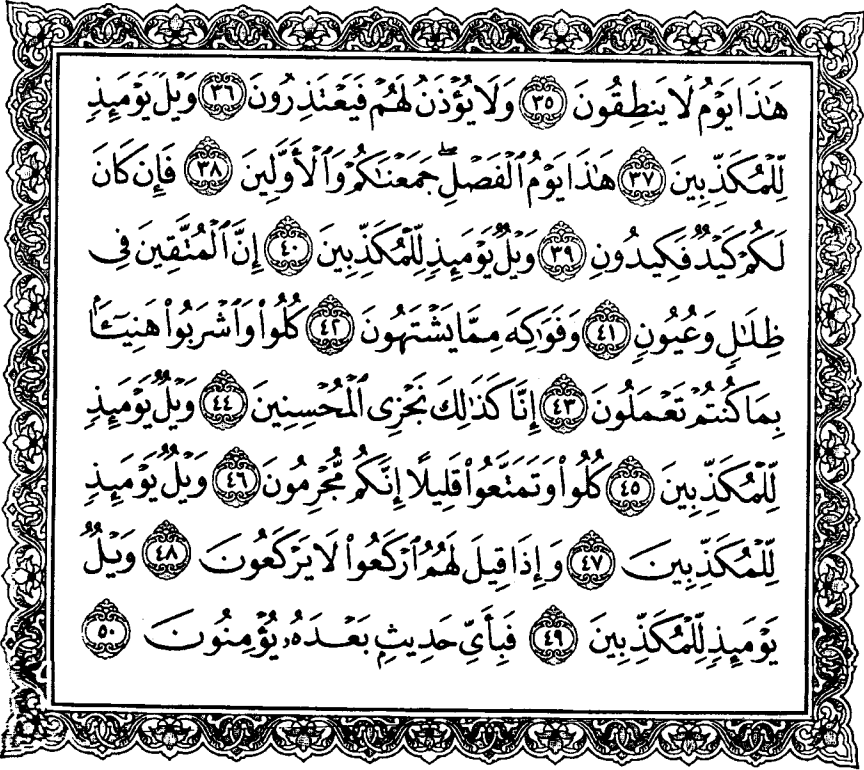 هَٰذَا يَوْمُ لَا يَنطِقُونَ ٣٥ وَلَا يُؤْذَنُ لَهُمْ فَيَعْتَذِرُونَ ٣٦ وَيْلٌ يَوْمَئِذٍ
لِّلْمُكَذِّبِينَ ٣٧ هَٰذَا يَوْمُ ٱلْفَصْلِ ۖ جَمَعْنَٰكُمْ وَٱلْأَوَّلِينَ ٣٨ فَإِن كَانَ
لَكُمْ كَيْدٌ فَكِيدُونِ ٣٩ وَيْلٌ يَوْمَئِذٍ لِّلْمُكَذِّبِينَ ٤٠ إِنَّ ٱلْمُتَّقِينَ فِى
ظِلَٰلٍ وَعُيُونٍ ٤١ وَفَوَٰكِهَ مِمَّا يَشْتَهُونَ ٤٢ كُلُوا۟ وَٱشْرَبُوا۟ هَنِيٓـًٔا
بِمَا كُنتُمْ تَعْمَلُونَ ٤٣ إِنَّا كَذَٰلِكَ نَجْزِى ٱلْمُحْسِنِينَ ٤٤ وَيْلٌ يَوْمَئِذٍ
لِّلْمُكَذِّبِينَ ٤٥ كُلُوا۟ وَتَمَتَّعُوا۟ قَلِيلًا إِنَّكُم مُّجْرِمُونَ ٤٦ وَيْلٌ يَوْمَئِذٍ
لِّلْمُكَذِّبِينَ ٤٧ وَإِذَا قِيلَ لَهُمُ ٱرْكَعُوا۟ لَا يَرْكَعُونَ ٤٨ وَيْلٌ
يَوْمَئِذٍ لِّلْمُكَذِّبِينَ ٤٩ فَبِأَىِّ حَدِيثٍۭ بَعْدَهُۥ يُؤْمِنُونَ ٥٠